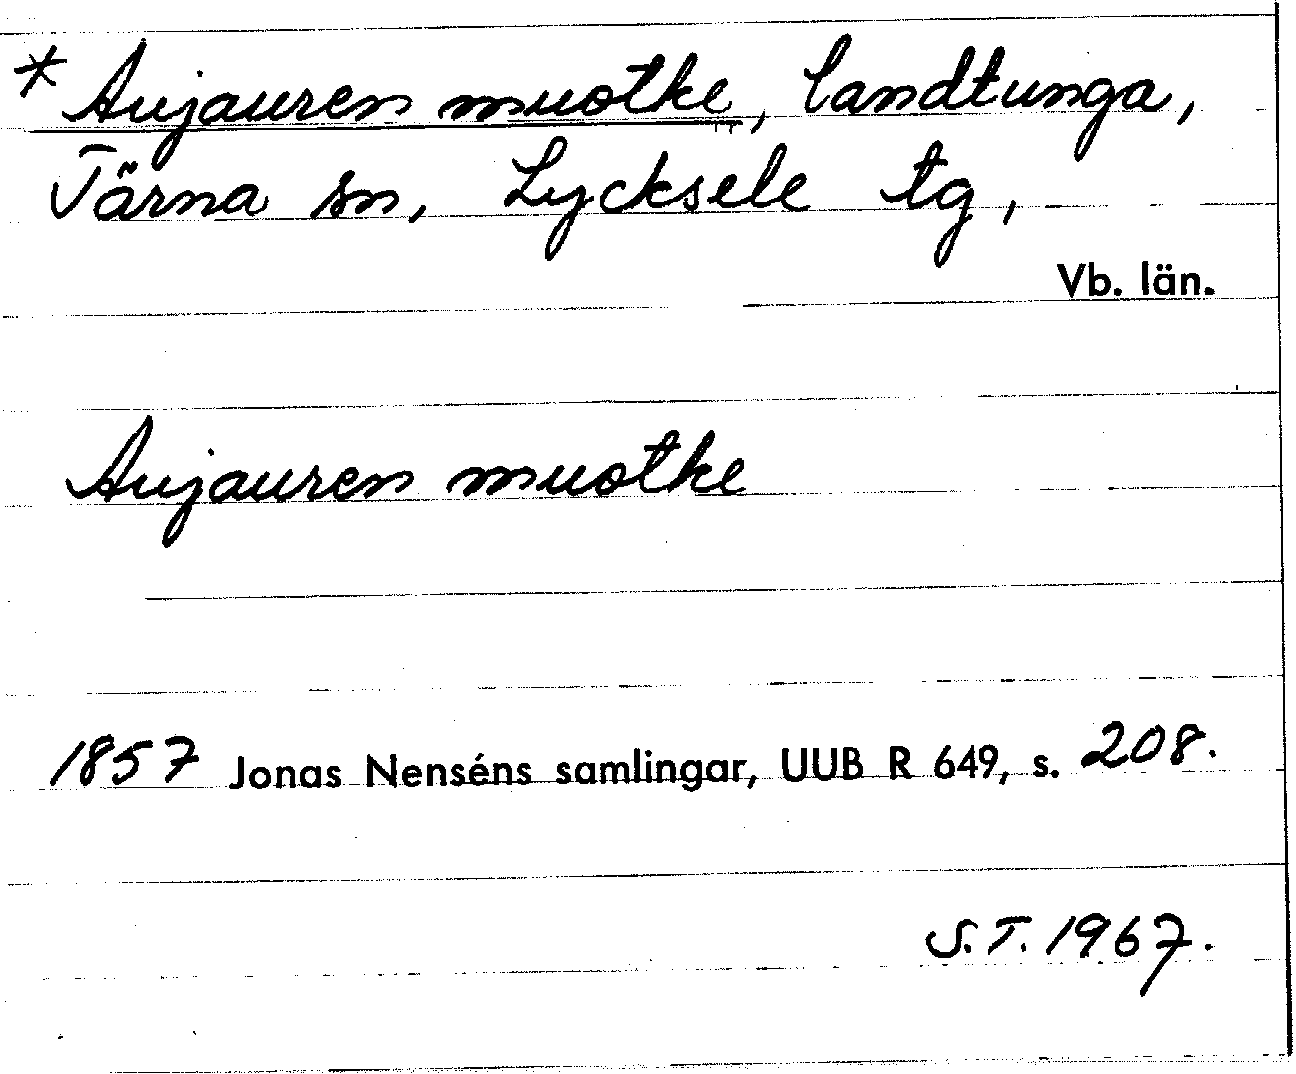 * Aujauren muotke, landtunga,
Tärna sn, Lycksele tg,
Vb. län.
Aujauren muotke
1857 Jonas Nenséns samlingar, UUB R 649, s. 208.
S.T. 1967.